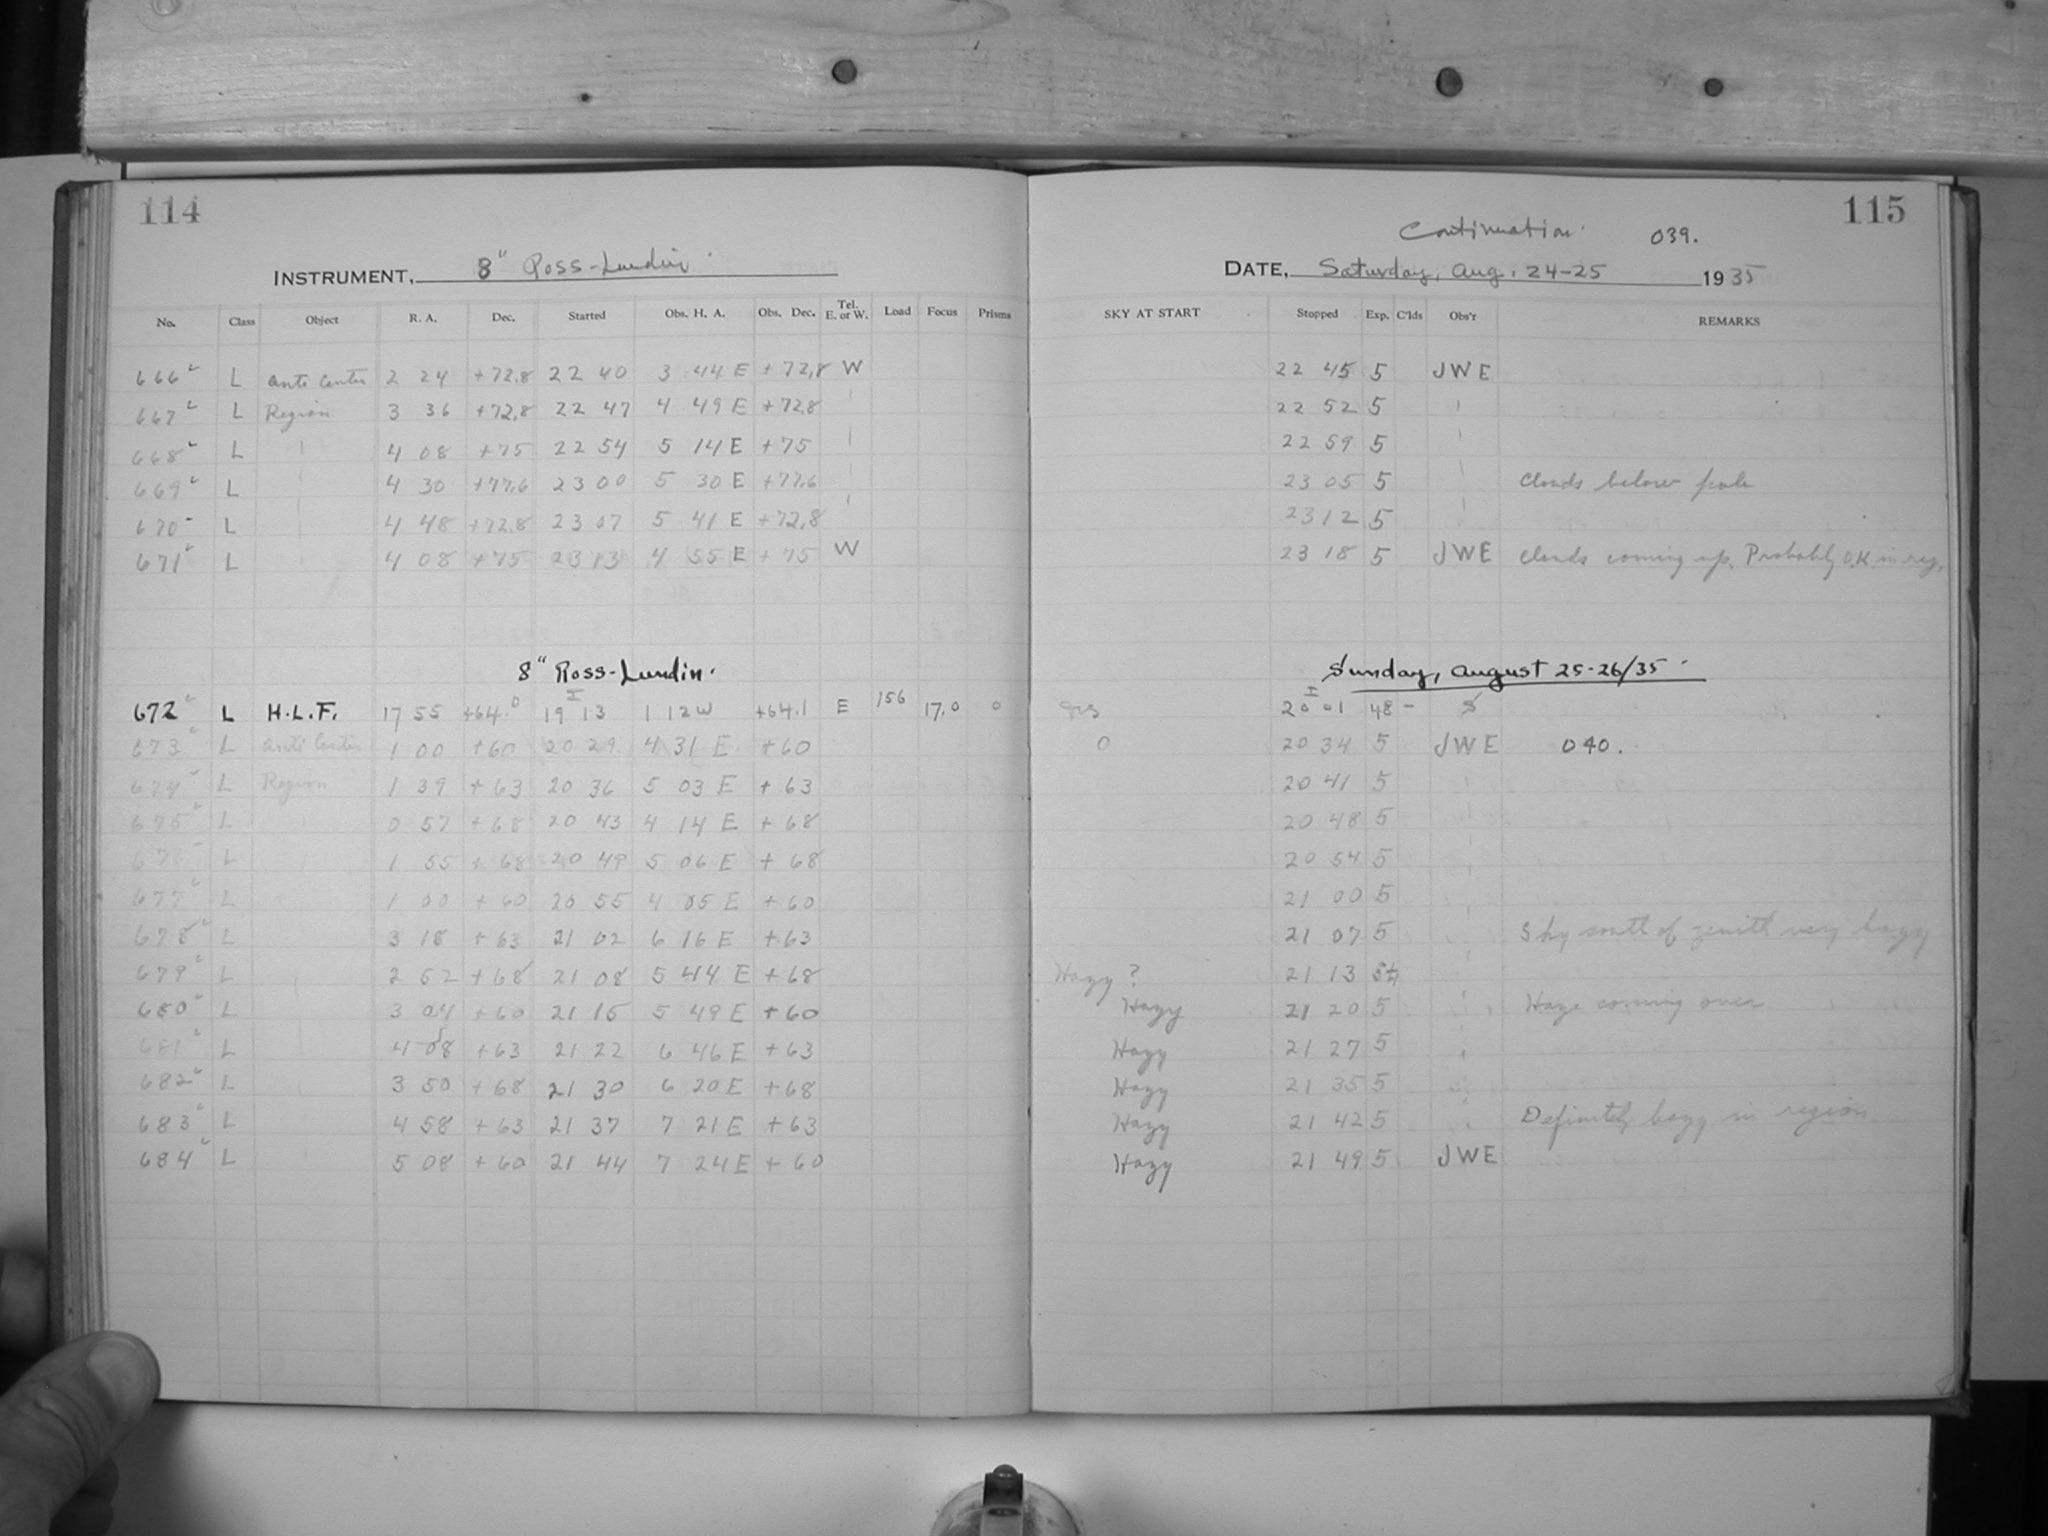 114
INSTRUMENT, 8" Ross-Lundin
No. Class Object R. A. Dec. Started Obs. H. A. Obs. Dec. Tel. E. or W. Load Focus Prisms
666 L Anti Center 2 24 +72.8 22 40 3 44 E +72.8 W
667 L Region 3 36 +72.8 22 47 4 49 E +72.8
668 L 4 08 +75 22 54 5 14 E +75
669 L 4 30 +77.6 23 00 5 30 E +77.6
670 L 4 48 +72.8 23 07 5 41 E +72.8
671 L 4 08 +75 23 13 4 55 E +75 W
8" Ross-Lundin.
672 L H.L.F. 17 55 +64.0 19 13 1 12 W +64.1 E 156 17.0 0
673 L Anti Center 1 00 +60 20 29 4 31 E +60
674 L Region 1 39 +63 20 36 5 03 E +63
675 L 0 57 +68 20 43 4 14 E +68
676 L 1 55 +68 20 49 5 06 E +68
677 L 1 00 +60 20 55 4 05 E +60
678 L 3 18 +63 21 02 6 16 E +63
679 L 2 52 +68 21 08 5 44 E +68
680 L 3 04 +60 21 15 5 49 E +60
681 L 4 08 +63 21 22 6 46 E +63
682 L 3 50 +68 21 30 6 20 E +68
683 L 4 58 +63 21 37 7 21 E +63
684 L 5 08 +60 21 44 7 24 E +60
115
Continuation. 039.
DATE, Saturday, Aug. 24-25 1935
SKY AT START Stopped Exp. C'lds Obs'r REMARKS
22 45 5 JWE
22 52 5
22 59 5
23 05 5 Clouds below pole
23 12 5
23 18 5 JWE Clouds coming up. Probably O.K. in reg.
Sunday, August 25-26/35
20 01 48- S
0 20 34 5 JWE 040.
20 41 5
20 48 5
20 54 5
21 00 5
21 07 5 Sky south of zenith very hazy
Hazy ? 21 13
Hazy 21 20 5 Haze coming over
Hazy 21 27 5
Hazy 21 35 5
Hazy 21 42 5 Definitely hazy in region
Hazy 21 49 5 JWE